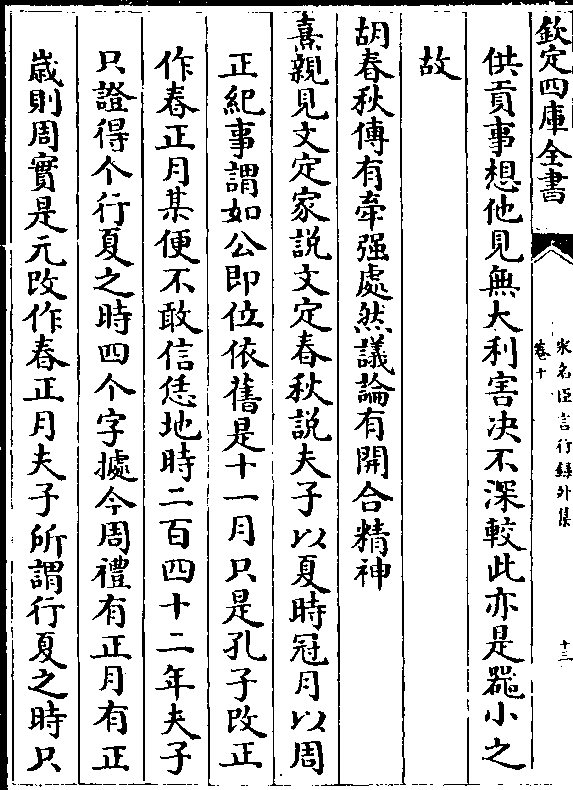 欽定四庫全書
宋名臣言行錄外集
卷十
十三
供貢事想他見無大利害决不深較此亦是器小之
故
胡春秋傳有牽强處然議論有開合精神
熹親見文定家説文定春秋説夫子以夏時冠月以周
正紀事謂如公即位依舊是十一月只是孔子改正
作春正月某便不敢信恁地時二百四十二年夫子
只證得个行夏之時四个字據今周禮有正月有正
嵗則周實是元改作春正月夫子所謂行夏之時只